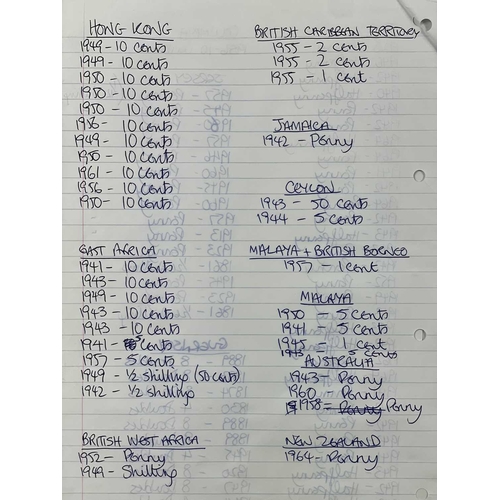 HONG KONG
1949 - 10 cents
1949 - 10 cents
1950 - 10 cents
1950 - 10 cents
1950 - 10 cents
1958 - 10 cents
1949 - 10 cents
1950 - 10 cents
1961 - 10 cents
1956 - 10 cents
1950 - 10 cents
EAST AFRICA
1941 - 10 cents
1943 - 10 cents
1949 - 10 cents
1943 - 10 cents
1943 - 10 cents
1941 - 5 cents
1957 - 5 cents
1949 - 1/2 shilling (50 cents)
1942 - 1/2 shilling
BRITISH WEST AFRICA
1952 - Penny
1949 - Shilling
BRITISH CARIBBEAN TERRITORY
1955 - 2 cents
1955 - 2 cents
1955 - 1 cent
JAMAICA
1942 - Penny
CEYLON
1943 - 50 cents
1944 - 5 cents
MALAYA + BRITISH BORNEO
1957 - 1 cent
MALAYA
1950 - 5 cents
1941 - 5 cents
1945 - 1 cent
1943 5 cents
AUSTRALIA
1943 - Penny
1960 - Penny
1958 - Penny Penny
NEW ZEALAND
1964 - Penny